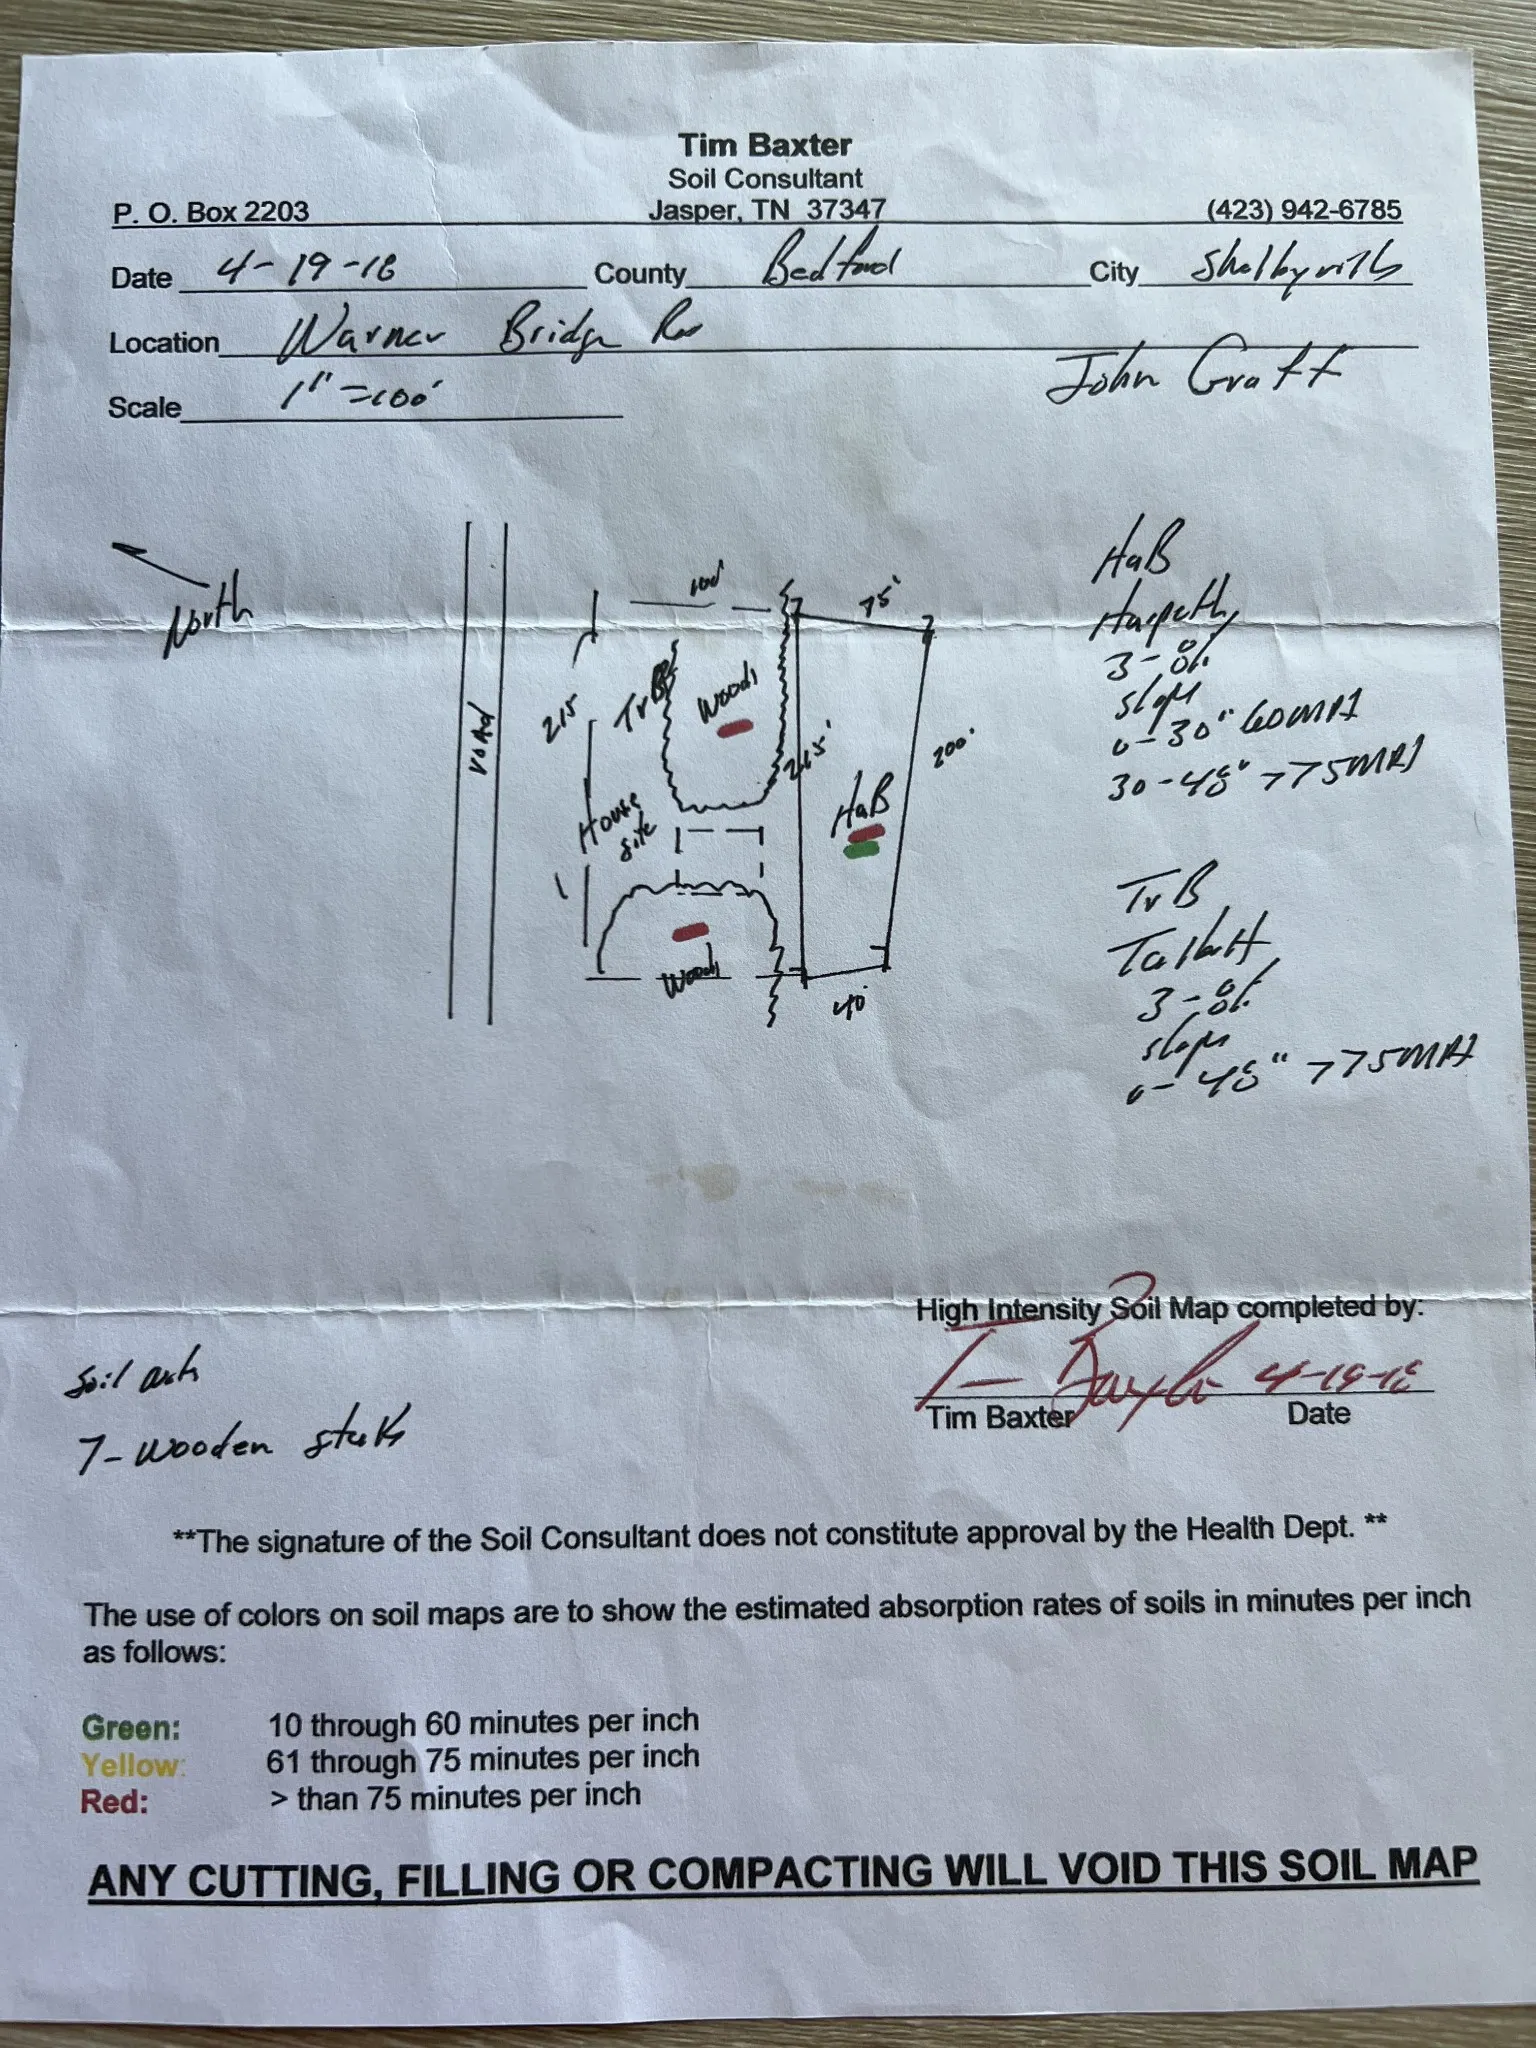 Tim Baxter
Soil Consultant
P. O. Box 2203 Jasper, TN 37347 (423) 942-6785
Date 4-19-18 County Bedford City Shelbyville
Location Warner Bridge Rd
John Graff
Scale 1"=100'
North
Road
100'
75'
215
TrB
Woods
215'
200'
House site
HaB
Woods
40'
HaB
Harpeth
3-8%
slope
0-30" 60MPI
30-48" >75MPI
TrB
Talbott
3-8%
slope
0-48" >75MPI
High Intensity Soil Map completed by:
Tim Baxter 4-19-18
Tim Baxter Date
Soil
7-wooden
**The signature of the Soil Consultant does not constitute approval by the Health Dept. **
The use of colors on soil maps are to show the estimated absorption rates of soils in minutes per inch
as follows:
Green: 10 through 60 minutes per inch
Yellow: 61 through 75 minutes per inch
Red: > than 75 minutes per inch
ANY CUTTING, FILLING OR COMPACTING WILL VOID THIS SOIL MAP